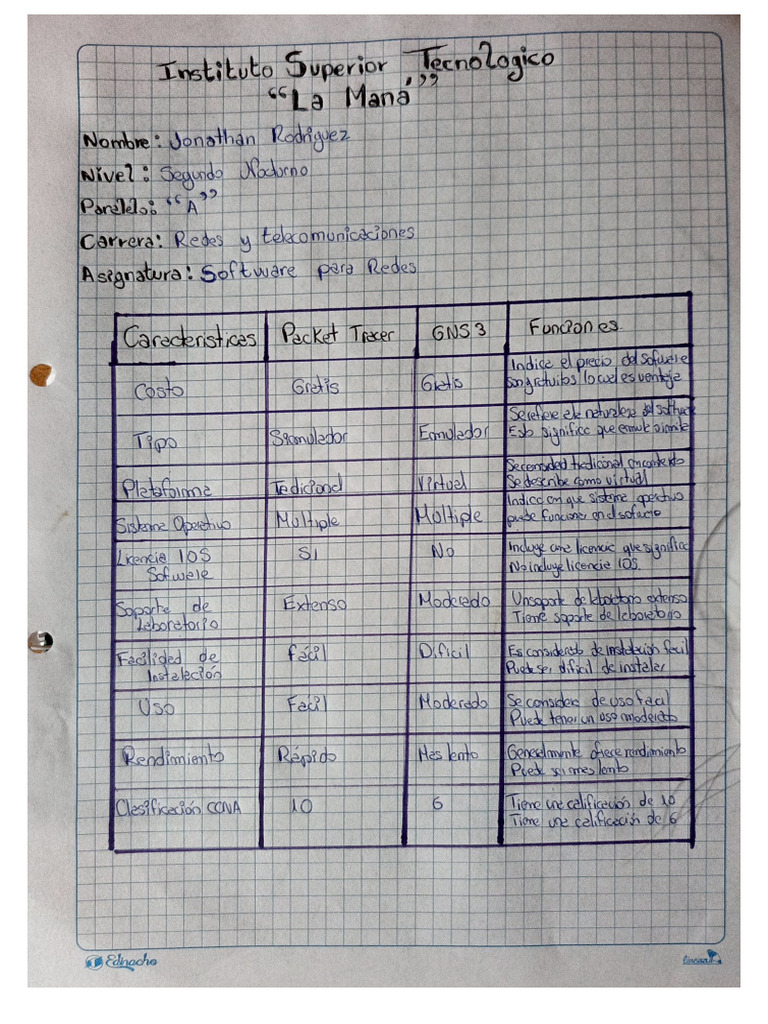 Instituto Superior Tecnologico
“La Maná”
Nombre: Jonathan Rodriguez
Nivel: Segundo Nocturno
Paralelo: “A”
Carrera: Redes y telecomunicaciones
Asignatura: Software para Redes
Caracteristicas Packet Tracer GNS3 Funciones
Costo Gratis Gratis Indice el precio del sofwere
son gratuitos lo cual es ventaje
Tipo Simulador Emulador Se refiere a la naturaleza del software
Esto significa que emula
Plataforma Tedicional Virtual tradicional
Se describe como virtual
Sistema Operativo Multiple Múltiple Indica con que sistema operativo
puede funcionar
Licencie IOS Si No Incluye una licencia que significa
Sofwere No incluye licencie IOS
Soporte de Extenso Moderado Un soporte de laboratorio extenso
Leboratorio Tiene soporte de leboratorio
Facilidad de fácil Dificil Es considerado de instalación facil
Instalación Puede ser dificil de instaler
Uso Fácil Moderado Se considera de uso facil
Puede tener un uso moderado
Rendimiento Rápido Mes lento Generalmente ofrece rendimiento
Puede mes lento
Clasificación CCNA 10 6 Tiene una calificación de 10
Tiene una calificación de 6
Edinacho